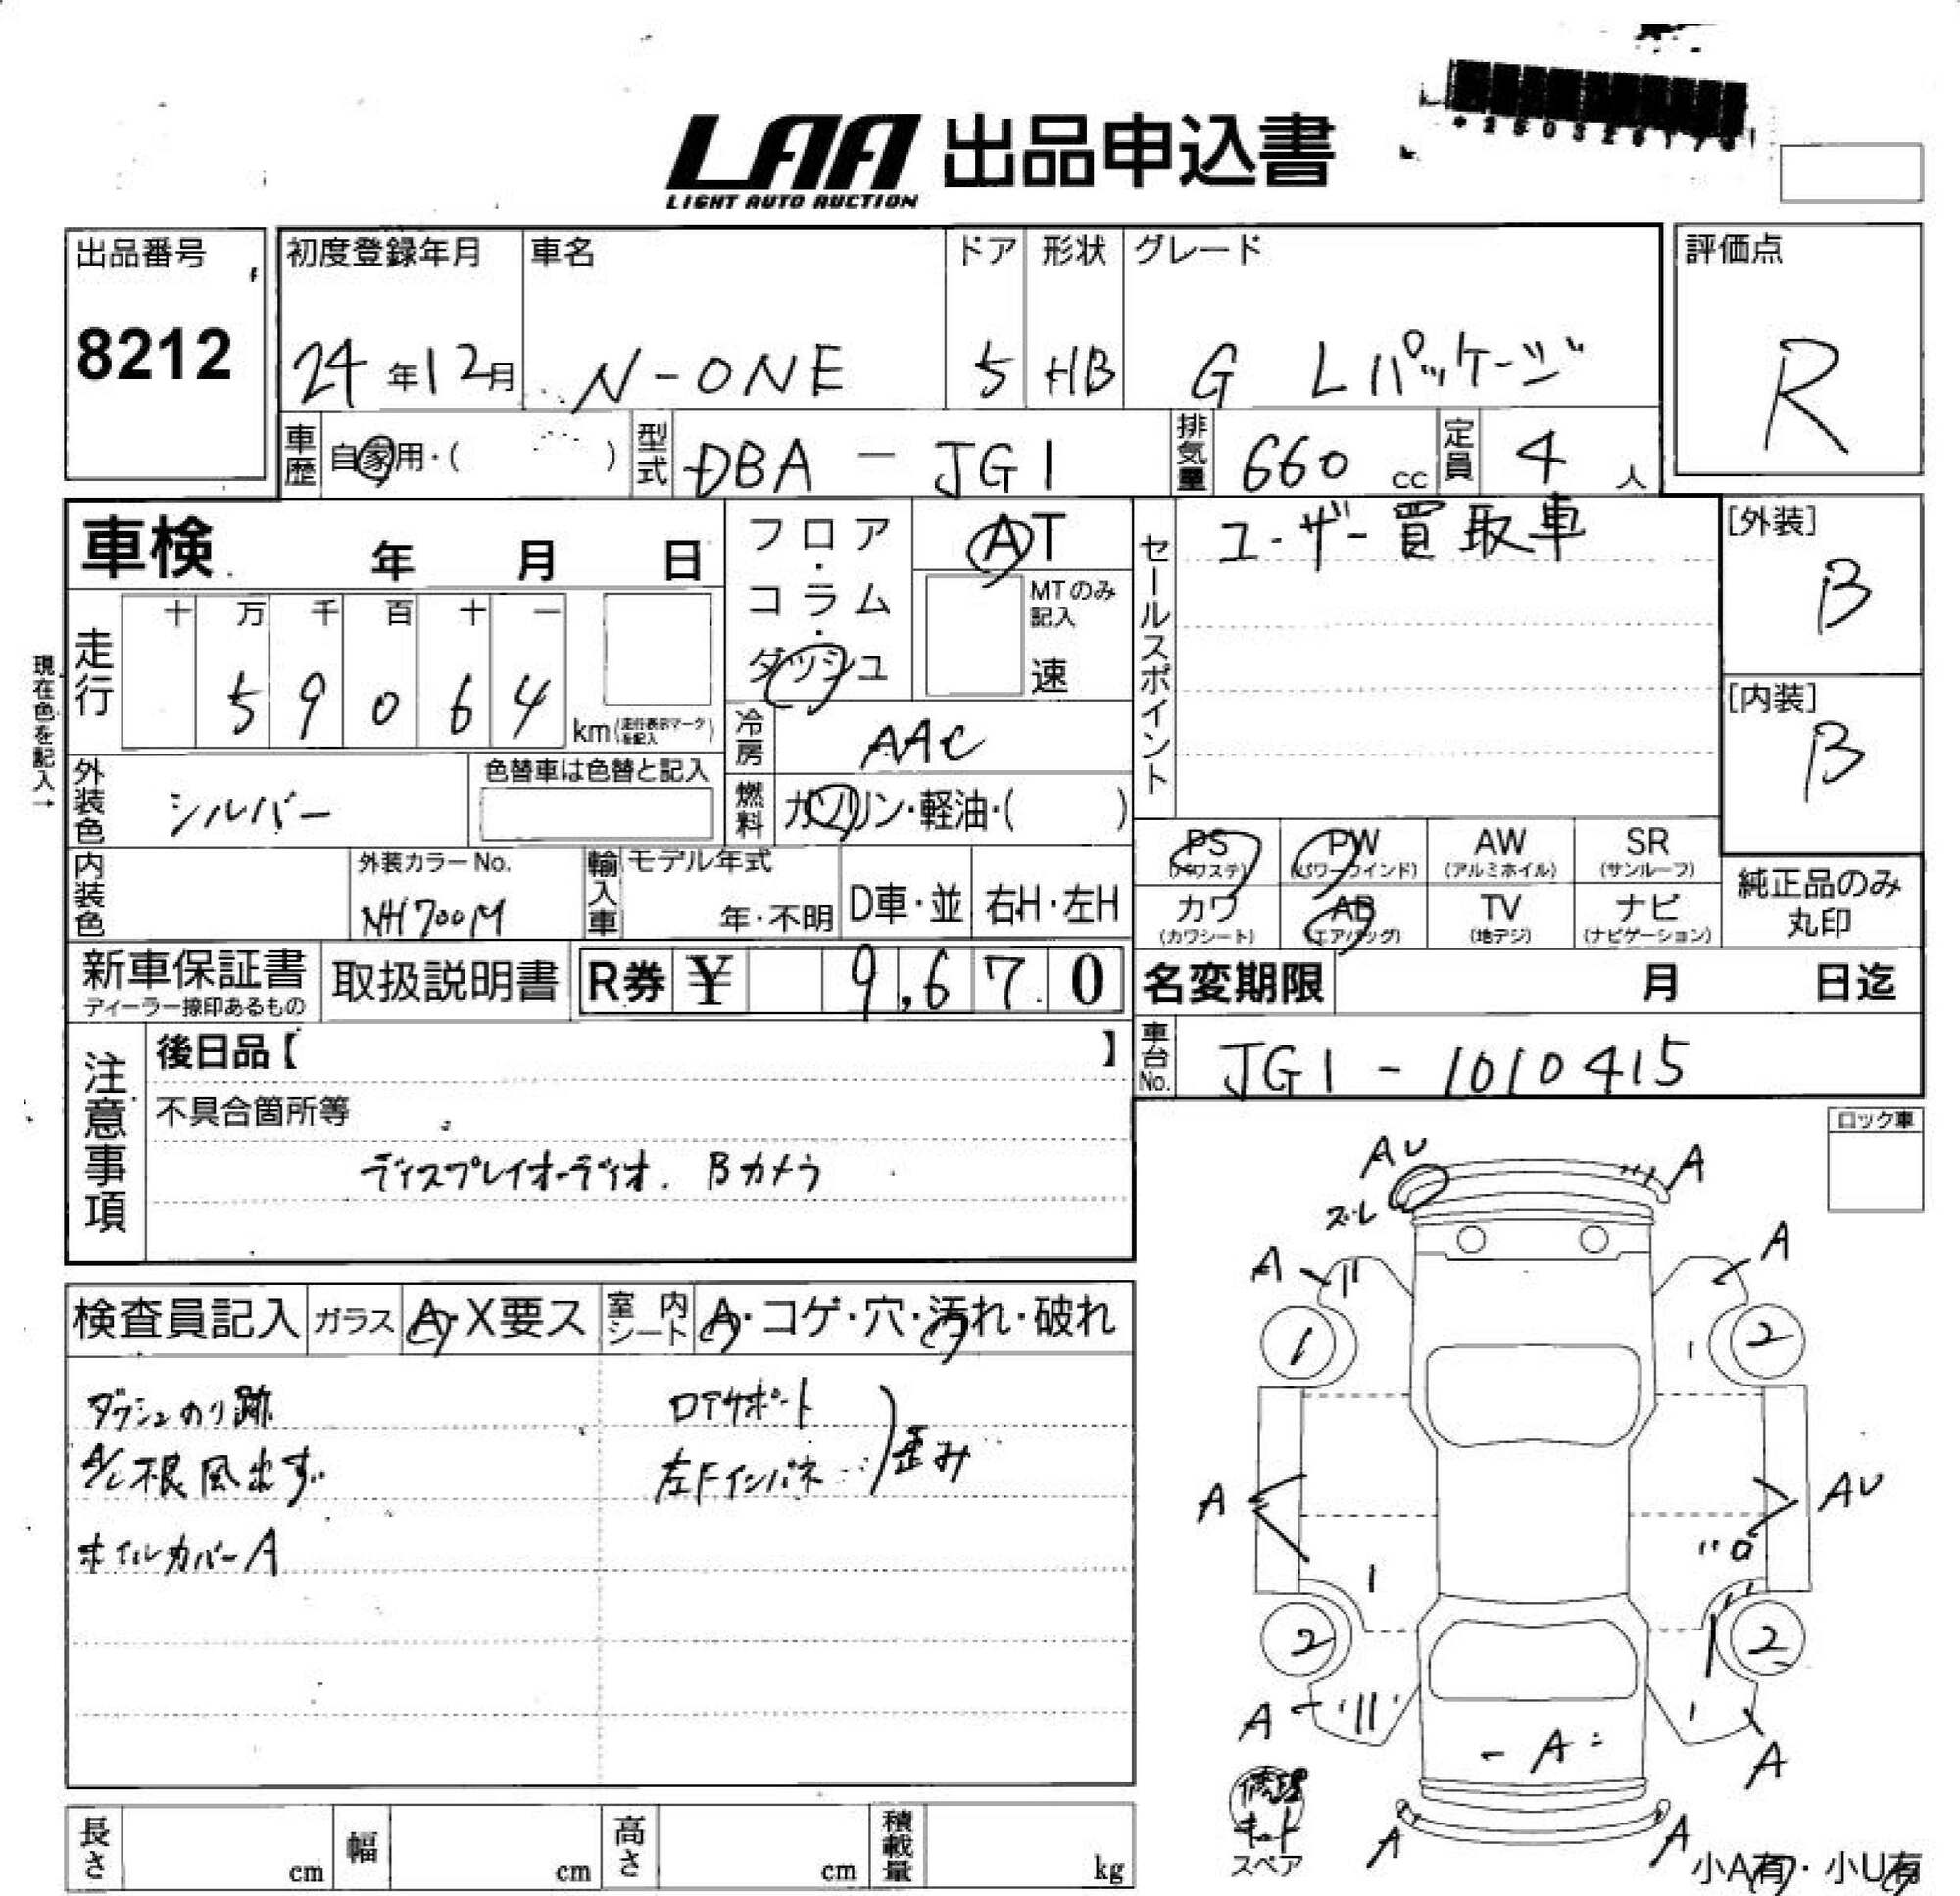 LAA 出品申込書
LIGHT AUTO AUCTION
出品番号
8212
初度登録年月
24年12月
車名
N-ONE
ドア
5
形状
HB
グレード
G Lパッケージ
評価点
R
車歴
自家用・( )
型式
DBA-JG1
排気量
660 cc
定員
4 人
車検 年 月 日
フロア・コラム・ダッシュ
AT
MTのみ記入
速
セールスポイント
ユーザー買取車
[外装]
B
[内装]
B
現在色を記入→
走行
十 万 千 百 十 一
5 9 0 6 4
km (走行表示マークを記入)
冷房
AAC
外装色
シルバー
色替車は色替と記入
燃料
ガソリン・軽油・( )
PS (パワステ)
PW (パワーウインド)
AW (アルミホイル)
SR (サンルーフ)
カワ (カワシート)
AB (エアバッグ)
TV (地デジ)
ナビ (ナビゲーション)
純正品のみ
丸印
内装色
外装カラーNo.
NH700M
輸入車
モデル年式
年・不明
D車・並
右H・左H
新車保証書
ディーラー捺印あるもの
取扱説明書
R券 ¥ 9,670
名変期限 月 日迄
車台No.
JG1-1010415
注意事項
後日品【 】
不具合箇所等
ディスプレイオーディオ. Bカメラ
ロック車
検査員記入
ガラス
A・X要ス
室内シート
A・コゲ・穴・汚れ・破れ
ダッシュのり跡
A/C 根風出ず
ホイルカバーA
ロアサポート
左Fインパネ
歪み
AU
ズレ
A
A
A
1
2
A
AU
2
2
A
A
A
A
A
修理
キット
スペア
小A有・小U有
長さ cm
幅 cm
高さ cm
積載量 kg